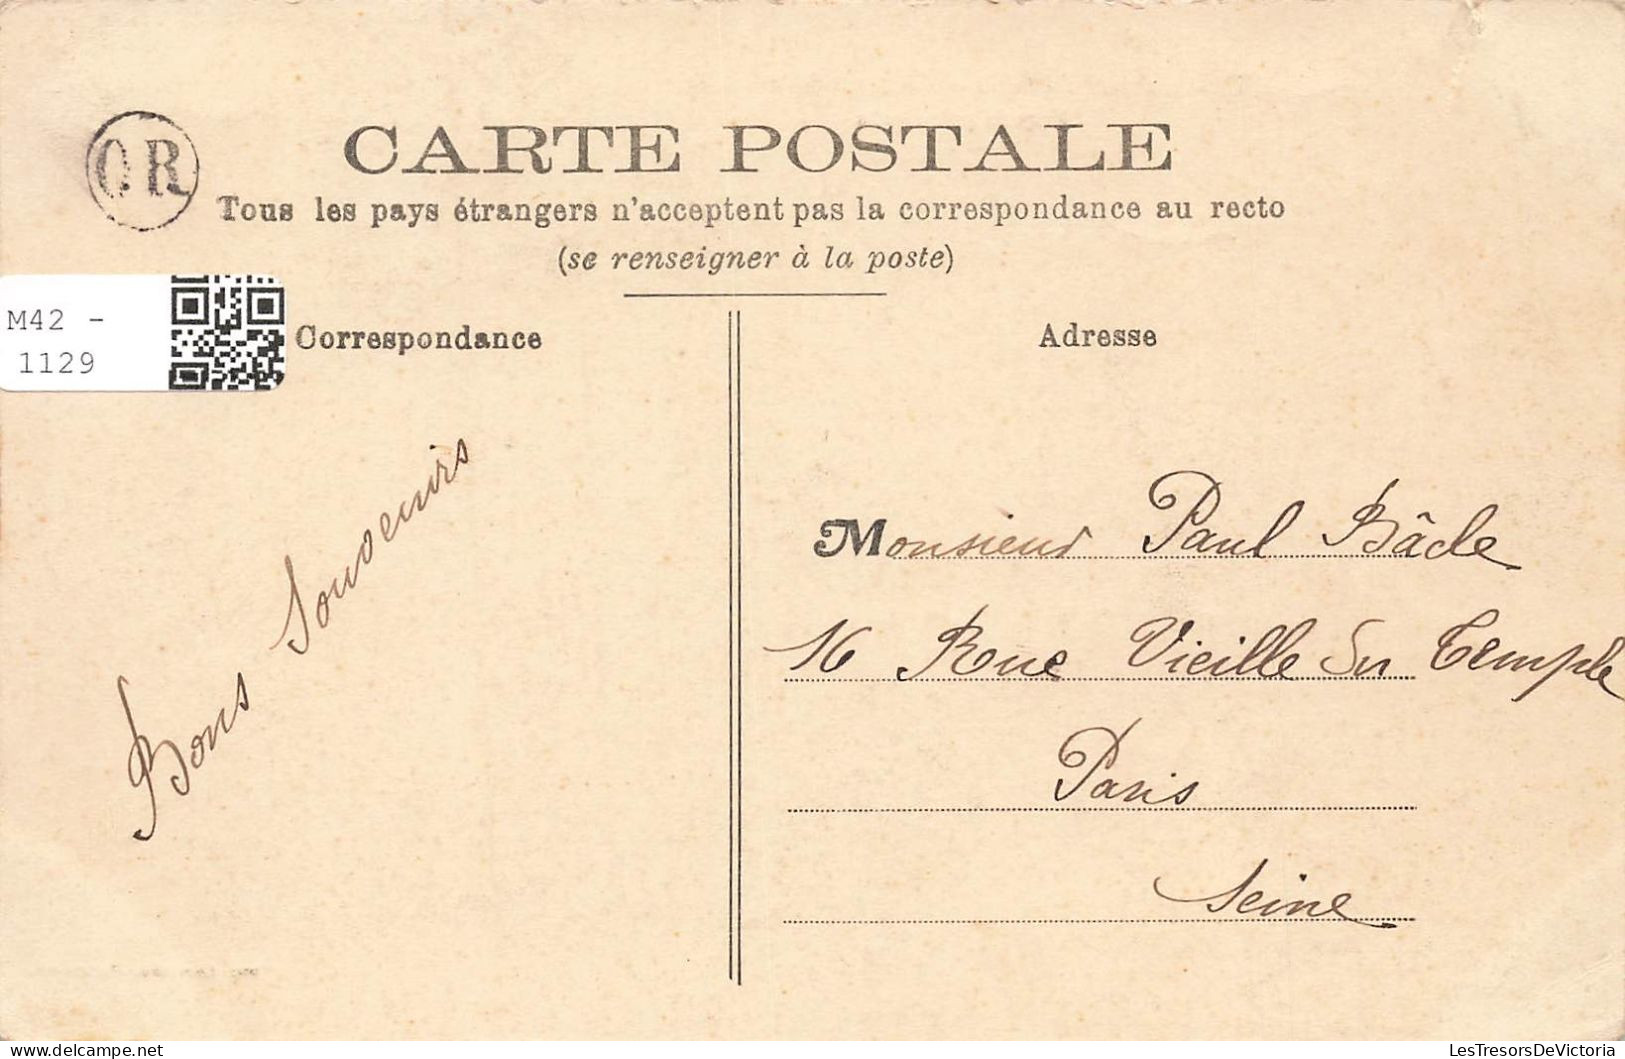 OR
CARTE POSTALE
Tous les pays étrangers n'acceptent pas la correspondance au recto
(se renseigner à la poste)
M42 -
1129
Correspondance
Adresse
Bons Souvenirs
Monsieur Paul Bâcle
16 Rue Vieille du Temple
Paris
Seine
LesTresorsDeVictoria